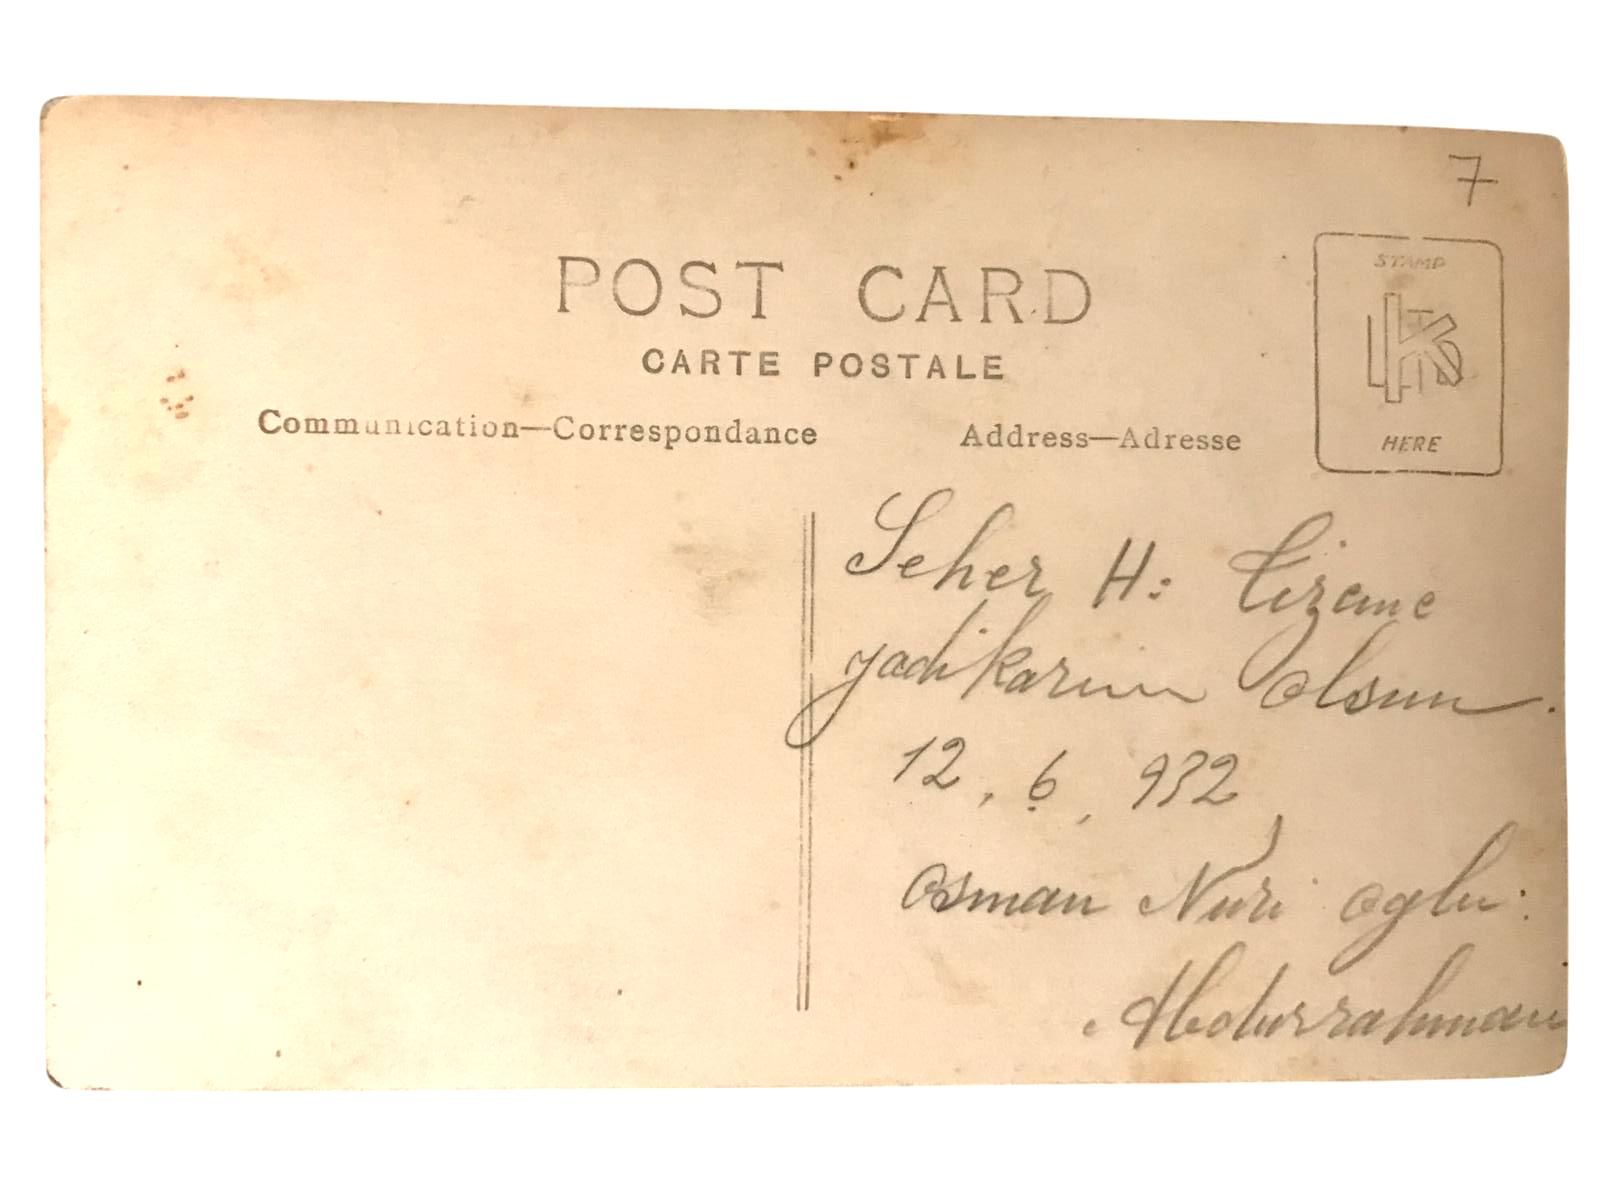 7
POST CARD
CARTE POSTALE
Communication—Correspondance
Address—Adresse
STAMP
HERE
Seher H:
yadikarım olsun.
12.6.932
Osman Nuri oglu:
Abdurrahman